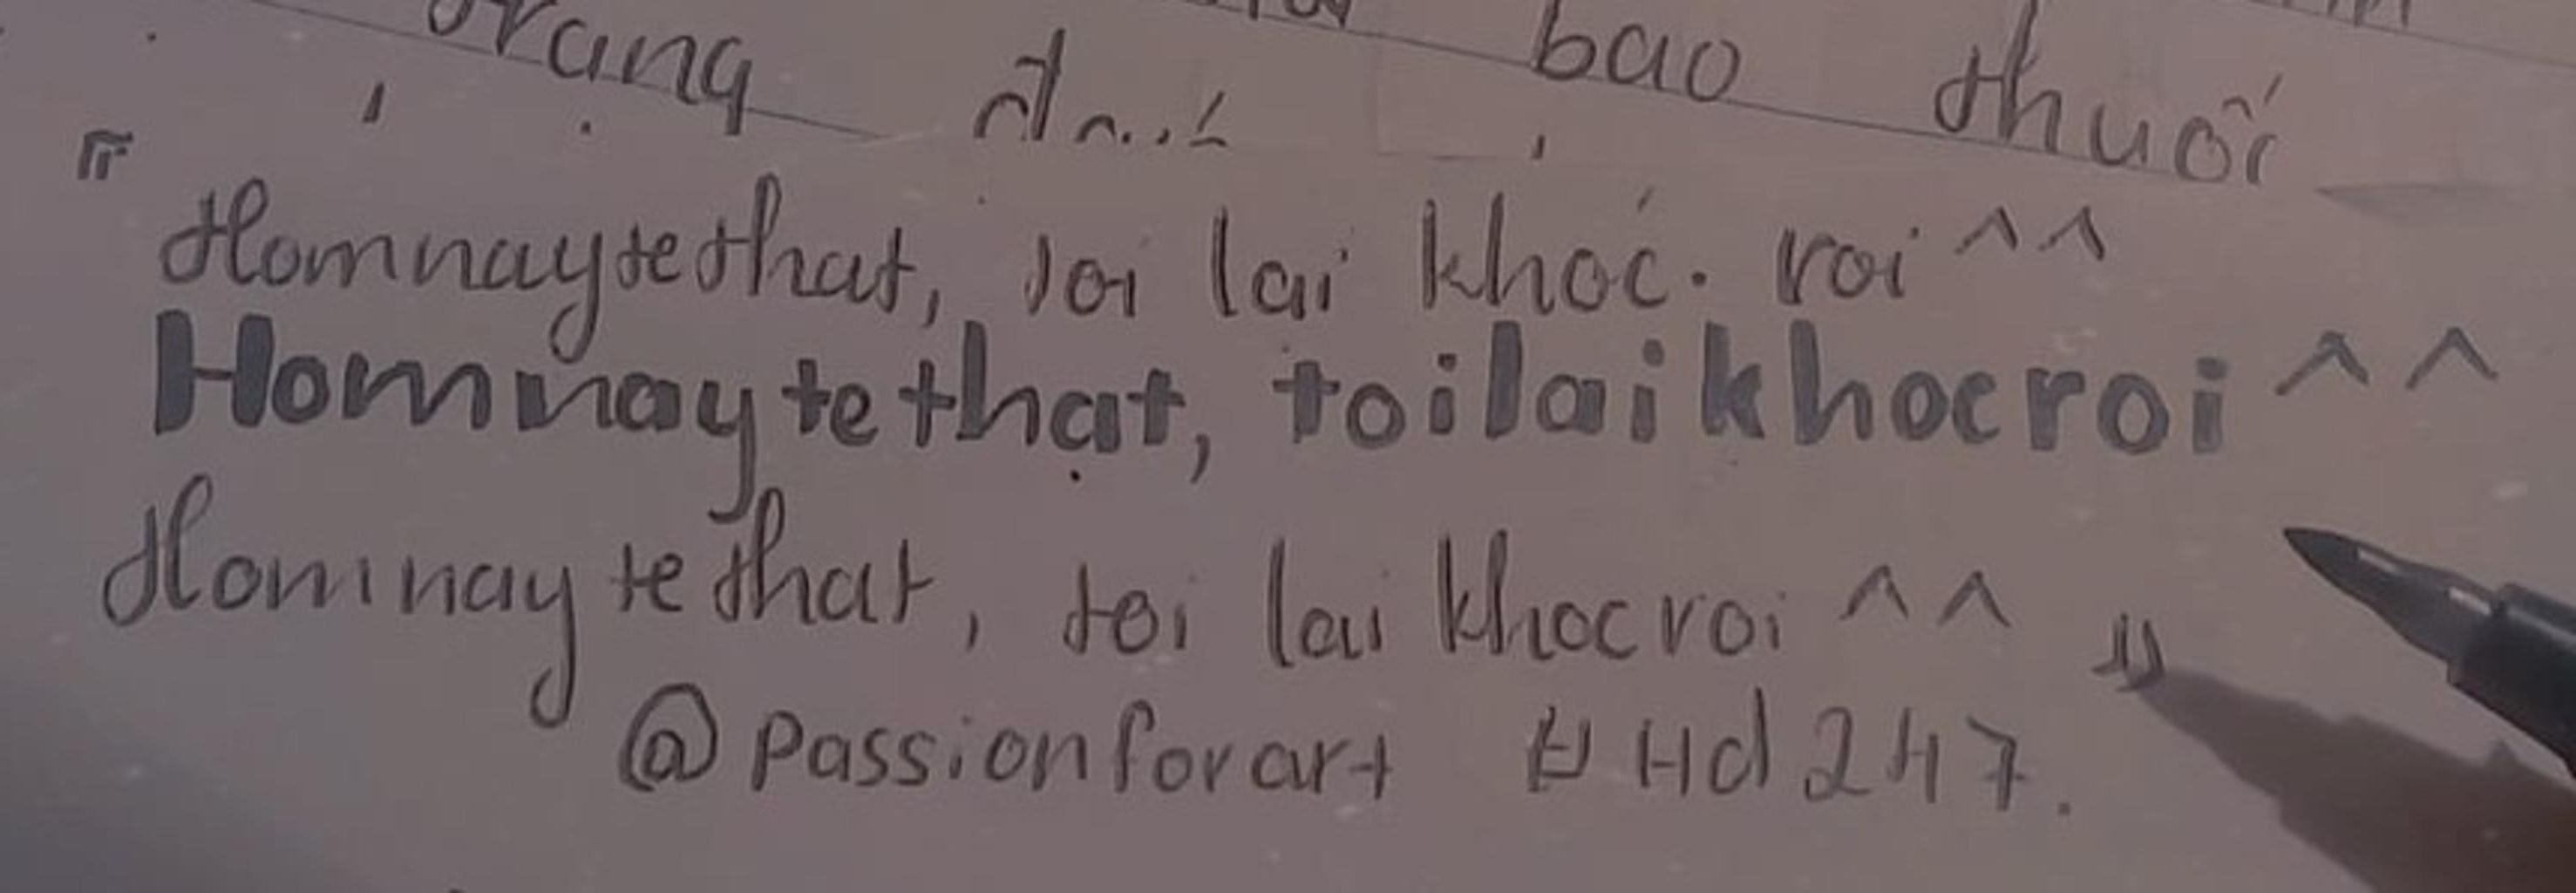 trang bao thuốc
『Homnaytethat, toi lai khoć. roi ^^
Homnaytethat, toilaikhocroi ^^
Homnay tethat, toi lai khocroi ^^ 』
@Passionforart #Hd247.